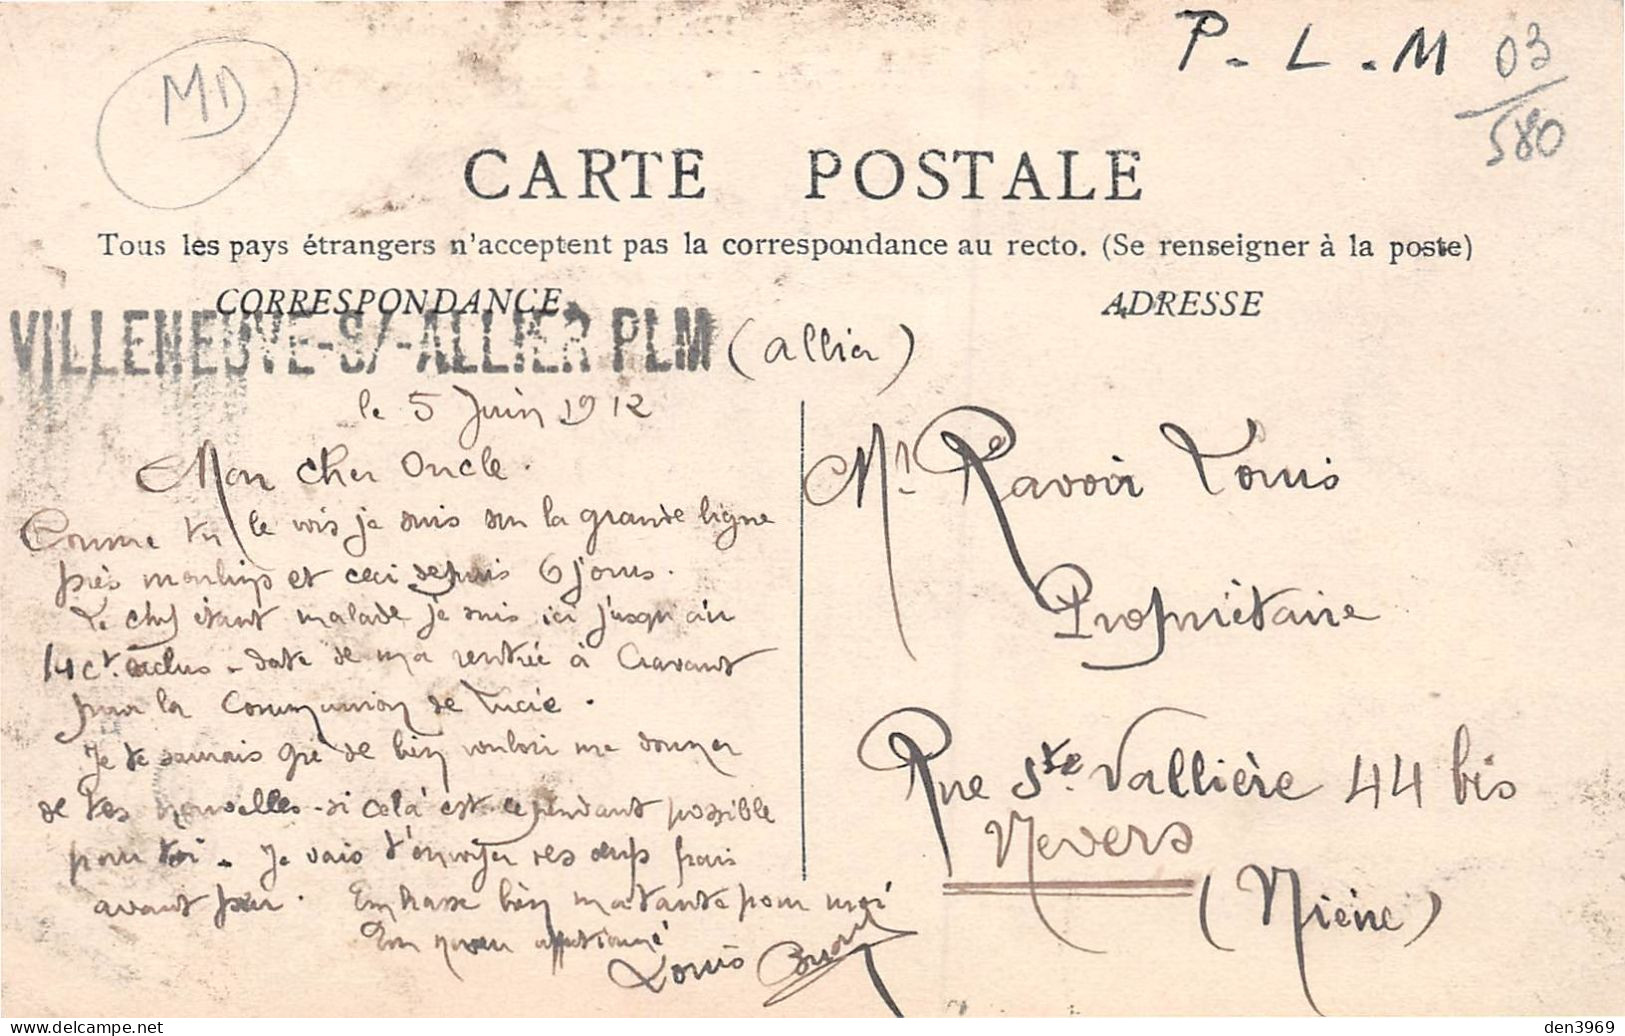 P. L. M
03
580
MD
CARTE POSTALE
Tous les pays étrangers n'acceptent pas la correspondance au recto. (Se renseigner à la poste)
CORRESPONDANCE
ADRESSE
VILLENEUVE-S/-ALLIER PLM (allier)
le 5 Juin 1912
Mon cher Oncle.
Comme tu le vois je suis sur la grande ligne
près moulins et ceci depuis 6 jours.
Le chef étant malade je suis ici jusqu'au
14 ct. exclus - date de ma rentrée à Cravant
pour la Communion de Lucie.
Je te saurais gré de bien vouloir me donner
de tes nouvelles - si celà est cependant possible
pour toi - Je vais t'envoyer des œufs frais
avant peu. Embrasse bien ma tante pour moi
Ton neveu affectionné
Louis
Mr Ravoir Louis
Propriétaire
Rue Ste Vallière 44 bis
Nevers
(Nièvre)
den3969